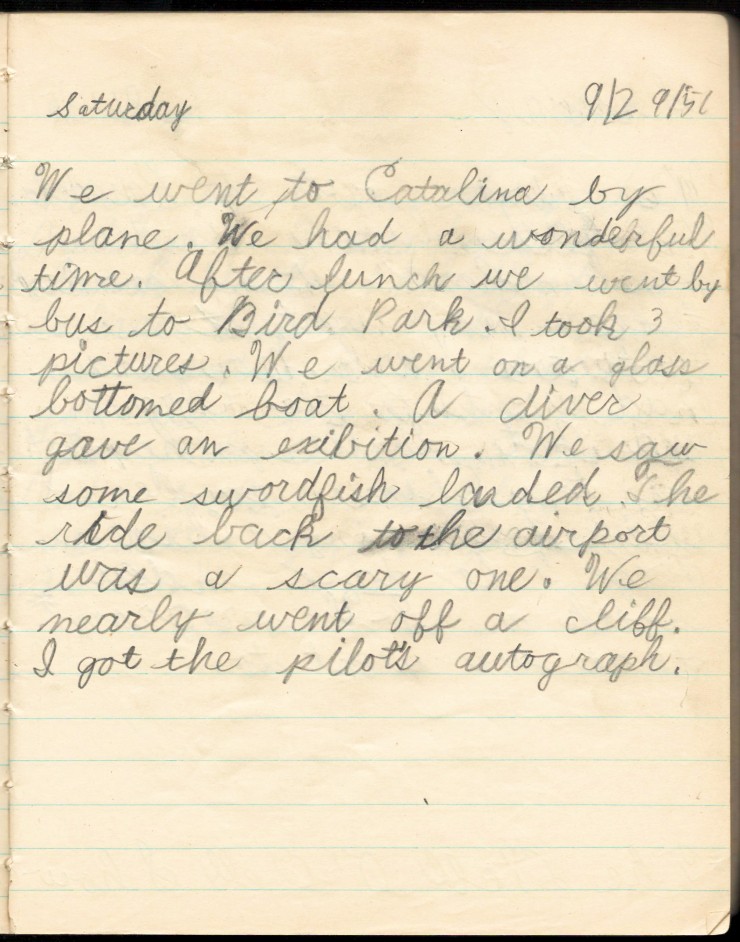 Saturday 9/29/51
We went to Catalina by
plane. We had a wonderful
time. After lunch we went by
bus to Bird Park. I took 3
pictures. We went on a glass
bottomed boat. A diver
gave an exibition. We saw
some swordfish landed. The
ride back to the airport
was a scary one. We
nearly went off a cliff.
I got the pilot's autograph.